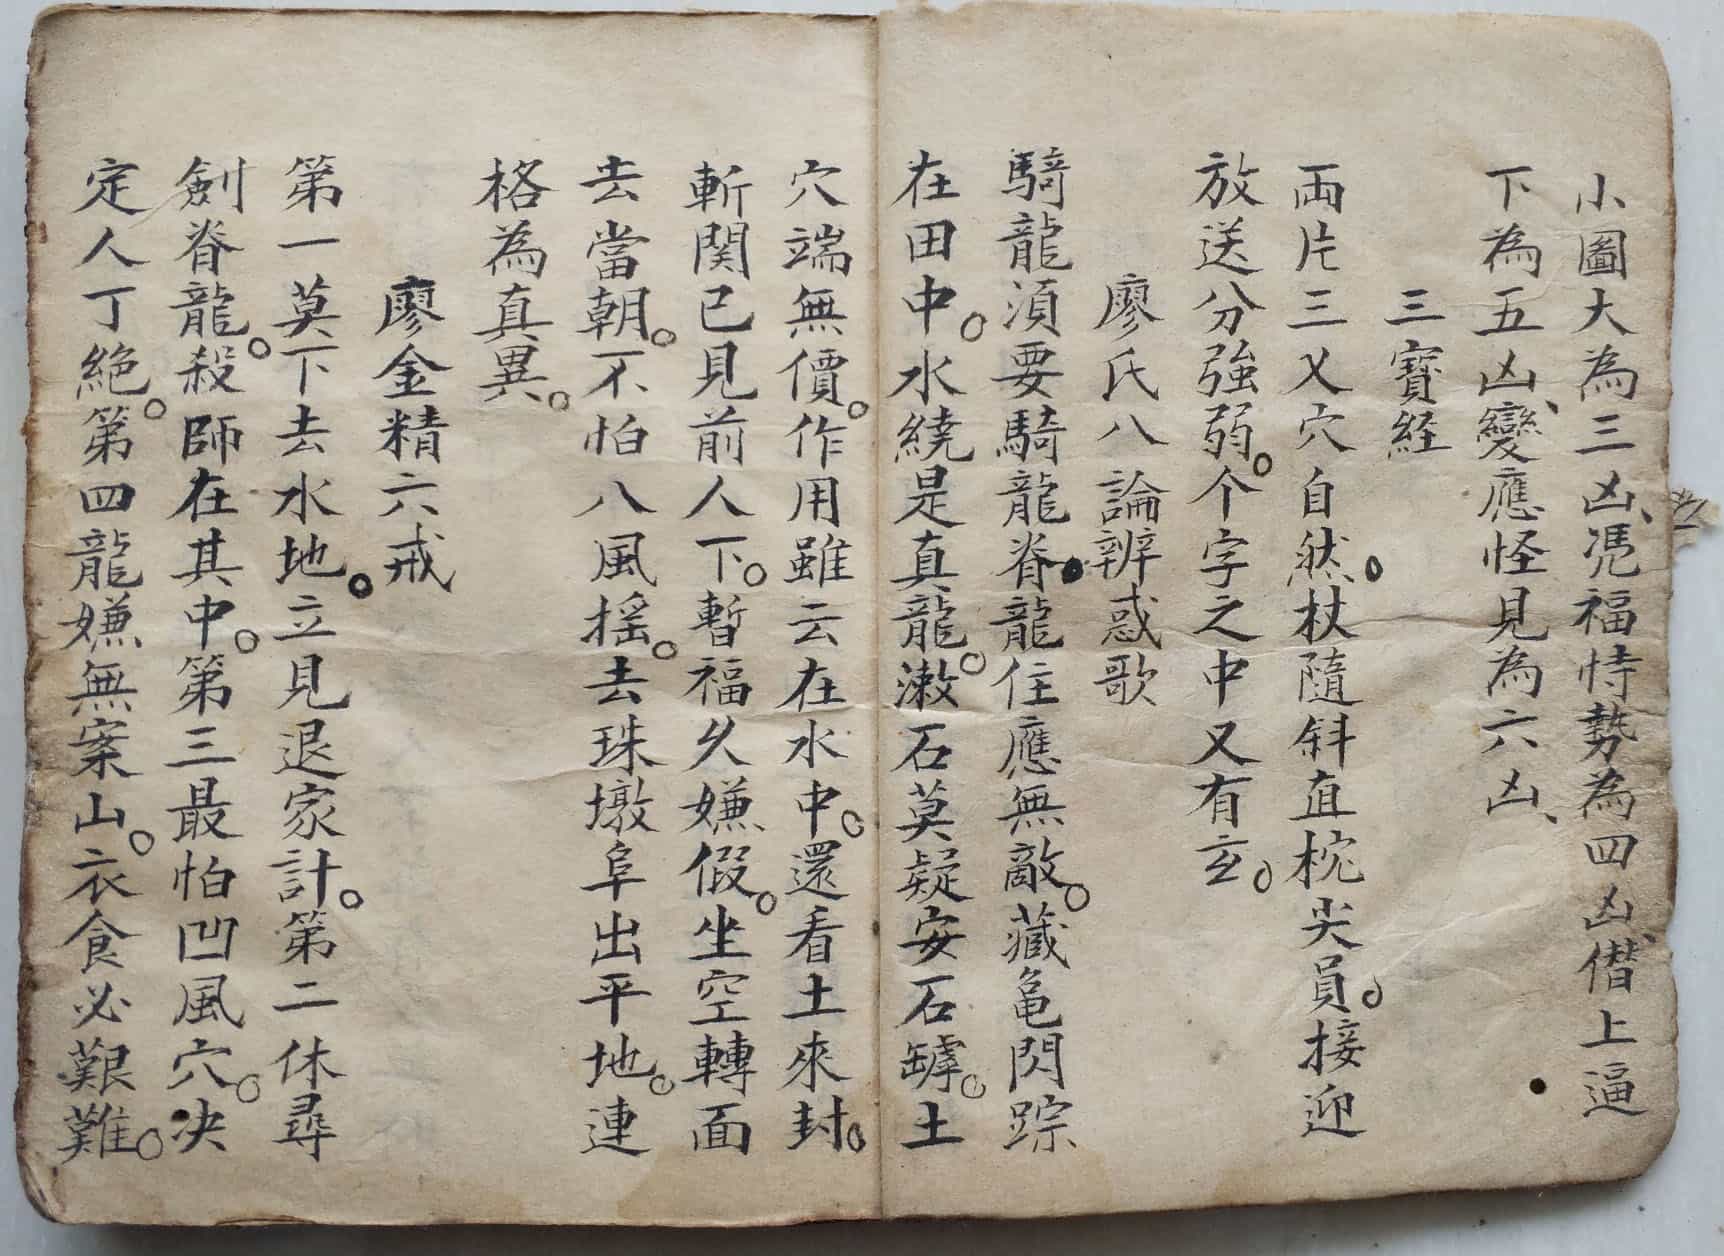 小圖大為三凶、凴福恃勢為四凶、僣上逼
下為五凶、變應怪見為六凶、
三寳経
両片三乂穴自然。杖隨斜直枕尖員。接迎
放送分強弱。个字之中又有玄。
廖氏八論辨惑歌
騎龍湏要騎龍脊。龍住應無敵。藏亀閃踪
在田中。水繞是真龍。漱石莫疑安石罅。土
穴端無價。作用雖云在水中。還看土來封。
斬関已見前人下。暫福乆嫌假。坐空轉面
去當朝。不怕八風摇。去珠墩阜出平地。連
格為真異。
廖金精六戒
第一莫下去水地。立見退家計。第二休尋
劍脊龍。殺師在其中。第三最怕凹風穴。决
定人丁絶。第四龍嫌無案山。衣食必艱難。